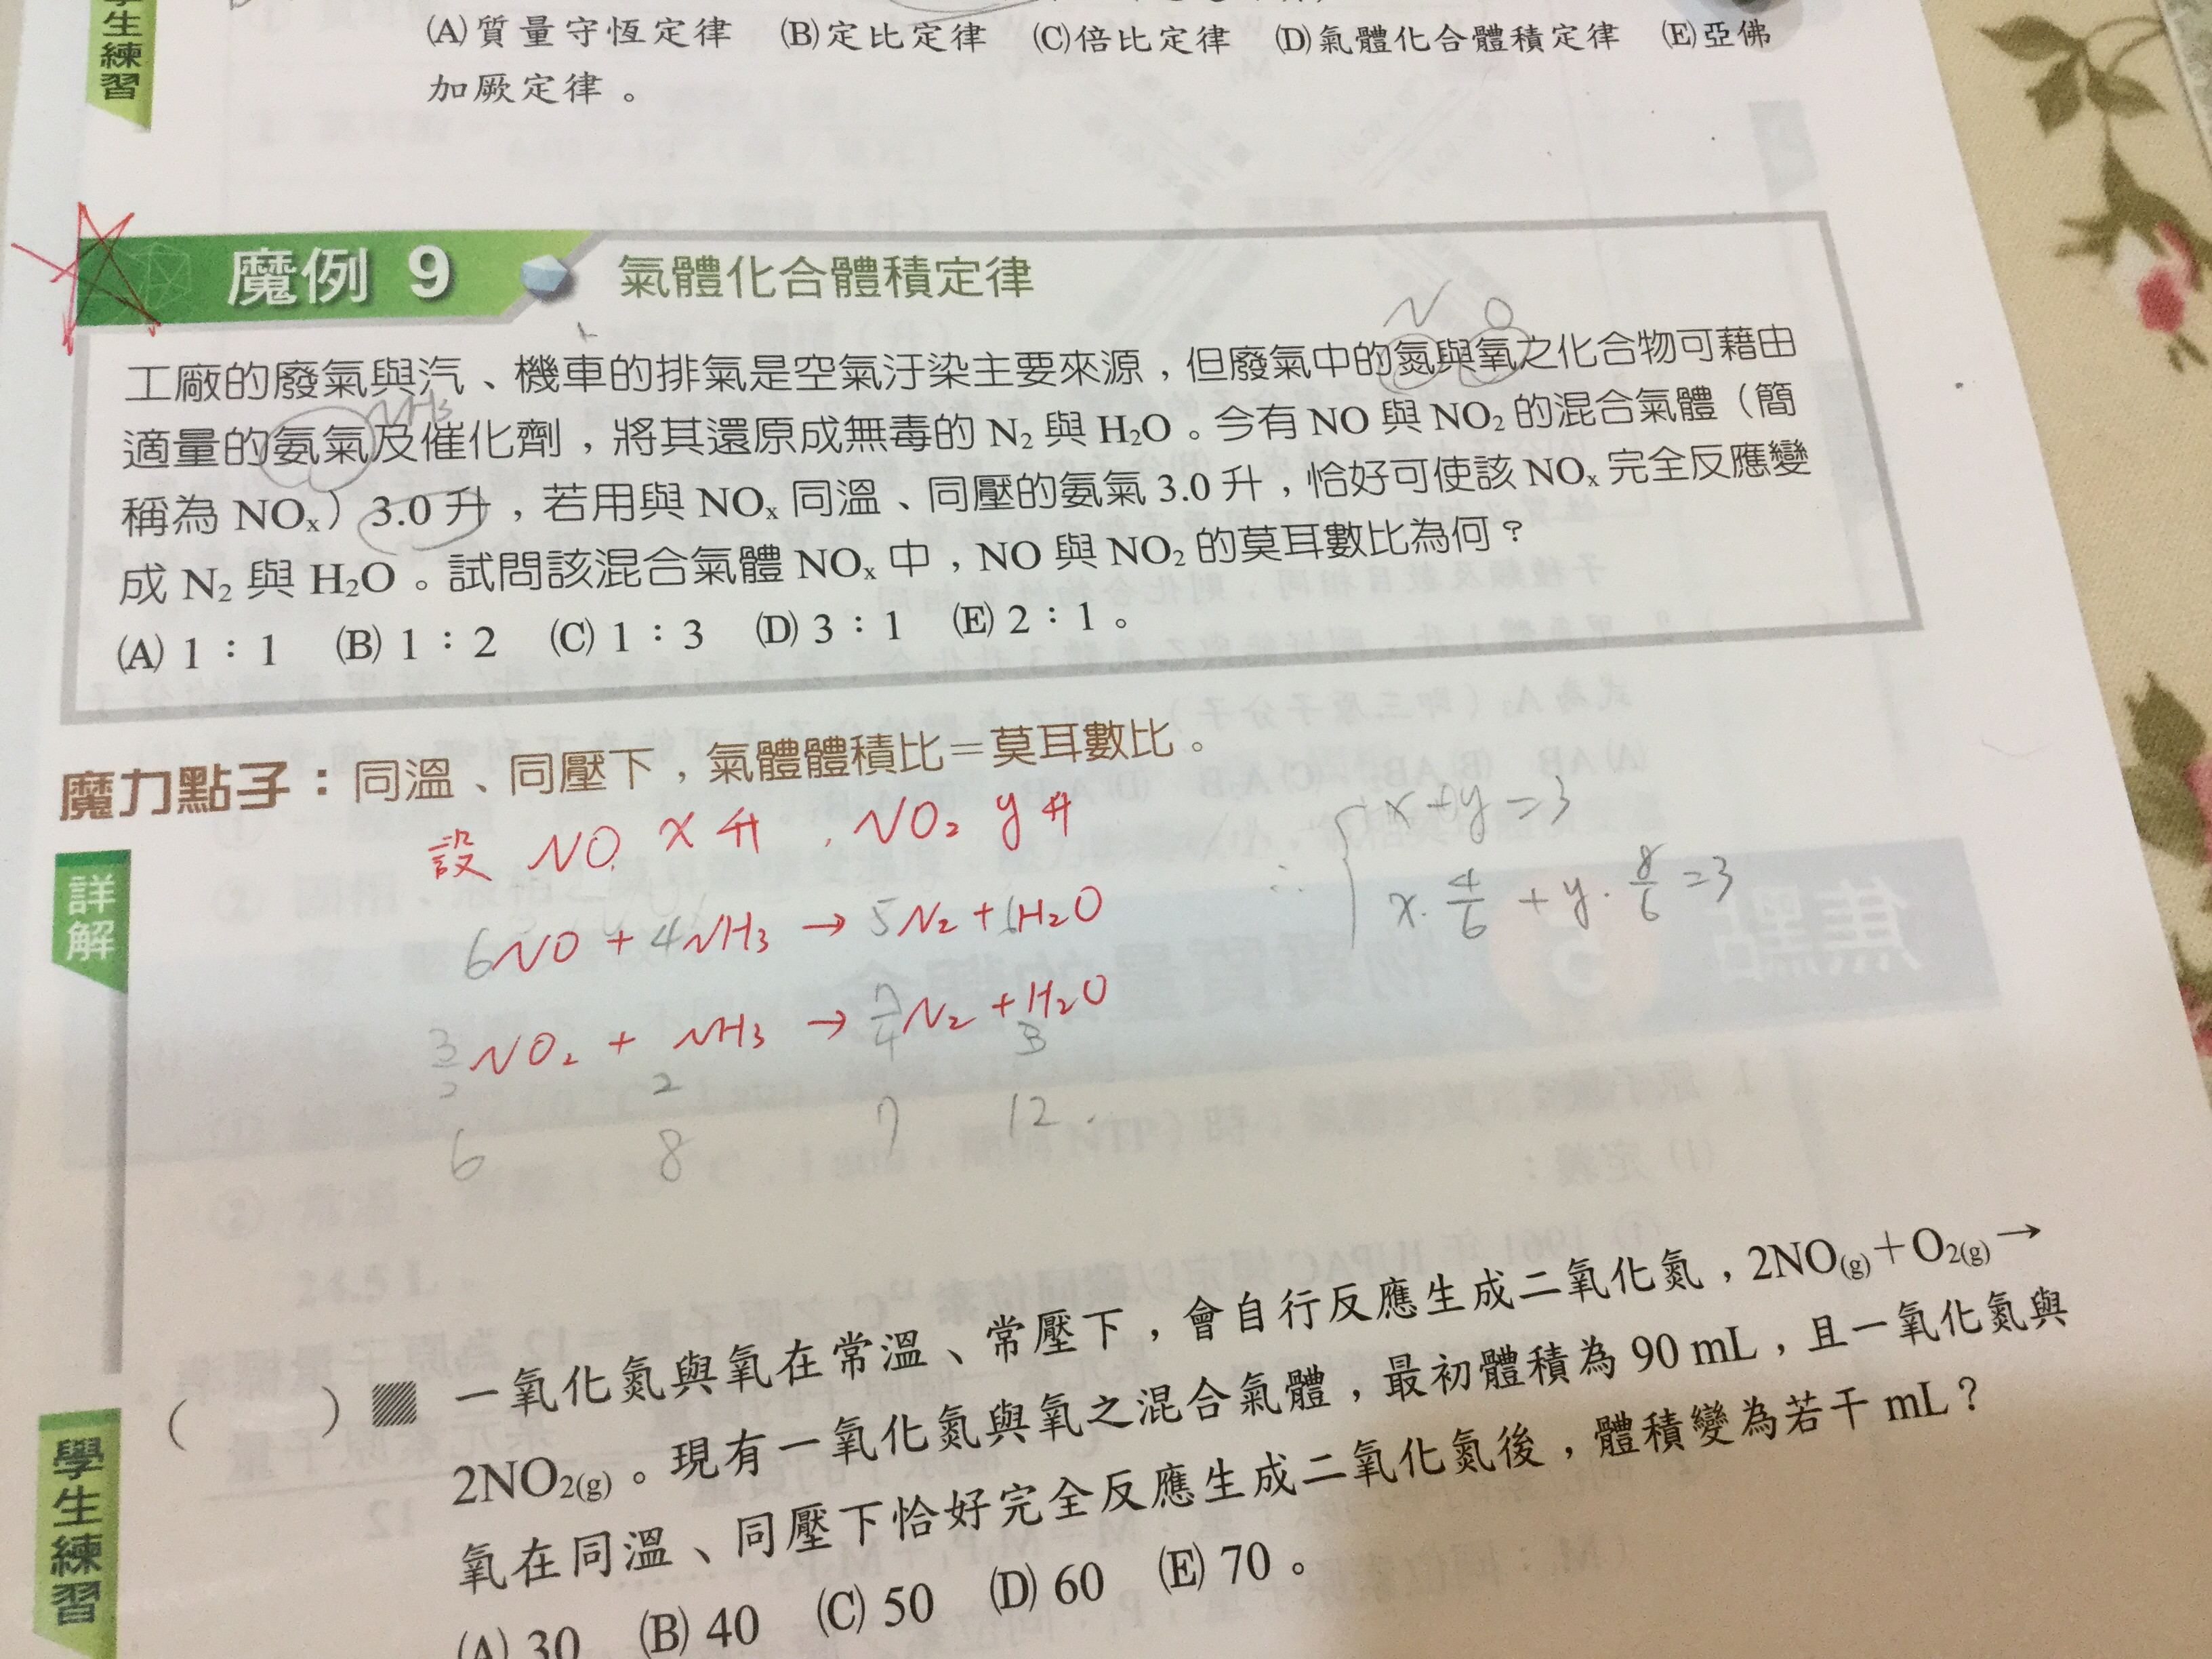 學生練習
(A)質量守恆定律 (B)定比定律 (C)倍比定律 (D)氣體化合體積定律 (E)亞佛
加厥定律。
魔例 9 氣體化合體積定律
N O
工廠的廢氣與汽、機車的排氣是空氣汙染主要來源，但廢氣中的氮與氧之化合物可藉由
NH₃
適量的氨氣及催化劑，將其還原成無毒的 N₂ 與 H₂O。今有 NO 與 NO₂ 的混合氣體（簡
稱為 NOₓ）3.0 升，若用與 NOₓ 同溫、同壓的氨氣 3.0 升，恰好可使該 NOₓ 完全反應變
成 N₂ 與 H₂O。試問該混合氣體 NOₓ 中，NO 與 NO₂ 的莫耳數比為何？
(A) 1：1 (B) 1：2 (C) 1：3 (D) 3：1 (E) 2：1。
魔力點子：同溫、同壓下，氣體體積比＝莫耳數比。
詳解
設 NO x 升，NO₂ y 升
6NO + 4NH₃ → 5N₂ + 6H₂O
3/2 NO₂ + NH₃ → 7/4 N₂ + H₂O
2 3
6 8 7 12
∴ { x + y = 3
x · 4/6 + y · 8/6 = 3
焦點 5
學生練習
( ) 一氧化氮與氧在常溫、常壓下，會自行反應生成二氧化氮，2NO(g)＋O₂(g)→
2NO₂(g)。現有一氧化氮與氧之混合氣體，最初體積為 90 mL，且一氧化氮與
氧在同溫、同壓下恰好完全反應生成二氧化氮後，體積變為若干 mL？
(A) 30 (B) 40 (C) 50 (D) 60 (E) 70。